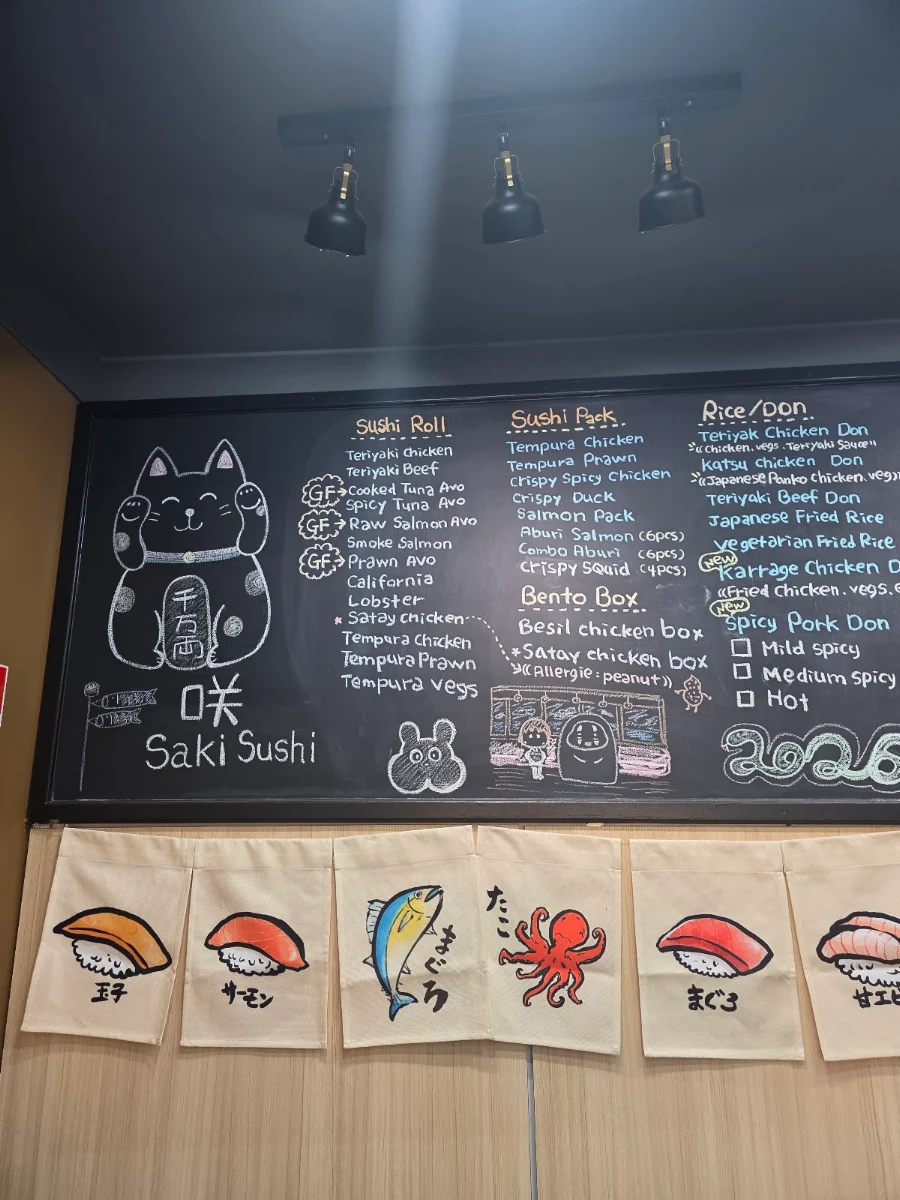 千
万
両
咲
Saki Sushi
Sushi Roll
Teriyaki Chicken
Teriyaki Beef
GF Cooked Tuna Avo
Spicy Tuna Avo
GF Raw Salmon Avo
Smoke Salmon
GF Prawn Avo
California
Lobster
* Satay chicken
Tempura Chicken
Tempura Prawn
Tempura vegs
Sushi Pack
Tempura Chicken
Tempura Prawn
Crispy Spicy Chicken
Crispy Duck
Salmon Pack
Aburi Salmon (6pcs)
Combo Aburi (6pcs)
Crispy Squid (4pcs)
Bento Box
Besil chicken box
*Satay chicken box
*((Allergie: peanut))
Rice/Don
Teriyak Chicken Don
*((Chicken. vegs. Terryaki Sauce))
Katsu Chicken Don
*((Japanese Panko Chicken. veg))
Teriyaki Beef Don
Japanese Fried Rice
Vegetarian Fried Rice
New
Karrage Chicken D
((Fried chicken. vegs.
New
Spicy Pork Don
Mild spicy
Medium spicy
Hot
2026
玉子
サーモン
まぐろ
たこ
まぐろ
甘エビ